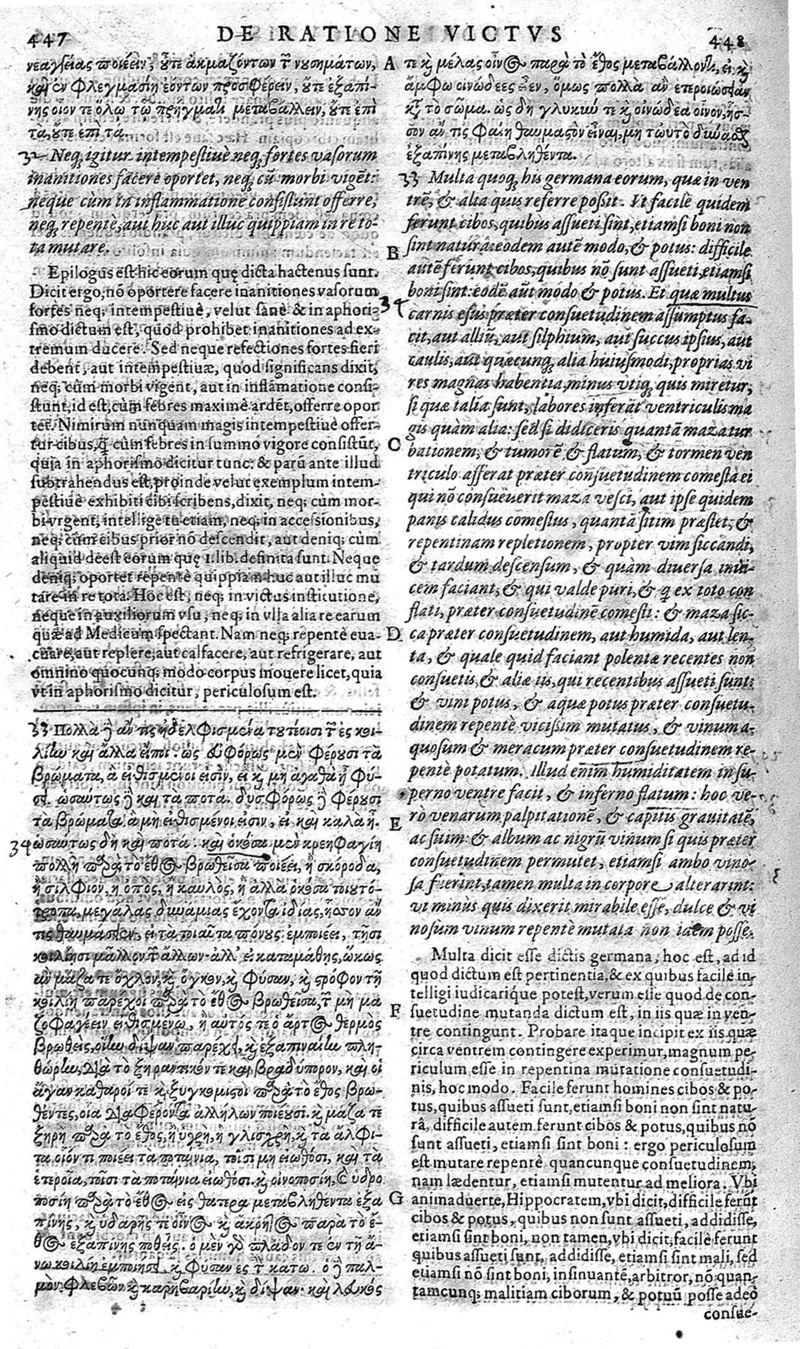 447
DE RATIONE VICTVS
448
νεαγγείας ποιέειν, οὔτε ἀκμαζόντων τῶν νουσημάτων,
καὶ ἐν φλεγμασίῃ ἐόντων προσφέρειν, οὔτε ἐξαπί-
νης οἷόν τε ὅλῳ τῷ πρήγματι μεταβάλλειν, οὔτε ἐπὶ
τὰ, οὔτε ἐπὶ τά.
32 Neq; igitur intempestiuè neq; fortes vasorum
inanitiones facere oportet, neq; cũ morbi vigẽt:
neque cùm in inflammatione consistunt offerre,
neq; repentè, aut huc aut illuc quippiam in re to-
ta mutare.
Epilogus est hic eorum quę dicta hactenus sunt.
Dicit ergo, nõ oportere facere inanitiones vasorum
fortes neq; intempestiuè, velut sanè & in aphoris-
smo dictum est, quòd prohibet inanitiones ad ex-
tremum ducere. Sed neque refectiones fortes fieri
debent, aut intempestiuæ, quod significans dixit,
neq; cùm morbi vigent, aut in inflãmatione consi-
stunt, id est, cùm febres maximè ardẽt, offerre opor
tet. Nimirum nunquam magis intempestiuè offer-
tur cibus, q̃ cùm febres in summo vigore consistũt,
quia in aphorismo dicitur tunc: & parũ ante illud
subtrahendus est, proinde velut exemplum intem-
pestiuè exhibiti cibi scribens, dixit, neq; cùm mor-
bi vrgent, intellige tu etiam, neq; in accessionibus,
neq; cùm cibus prior nõ descendit, aut deniq; cùm
aliquid deest eorum quę 1. lib. definita sunt. Neque
deniq; oportet repentè quippiã huc aut illuc mu
tare in re tota. Hoc est, neq; in victus institutione,
neque in auxiliorum vsu, neq; in vlla alia re earum
quæ ad Medicum spectant. Nam neq; repentè eua-
cuare, aut replere, aut calfacere, aut refrigerare, aut
omnino quocunq; modo corpus mouere licet, quia
vt in aphorismo dicitur, periculosum est.
33 Πολλὰ δ' ἄν τις ἠδελφισμένα τουτέοισι τῶν ἐς κοι-
λίην καὶ ἄλλα εἴποι· ὡς εὐφόρως μὲν φέρουσι τὰ
βρώματα, ἃ εἰθισμένοι εἰσὶν, εἰ καὶ μὴ ἀγαθὰ ᾖ φύ-
σει. ὡσαύτως δὲ καὶ τὰ ποτά. δυσφόρως δὲ φέρουσι
τὰ βρώματα, ἃ μὴ εἰθισμένοι εἰσιν, εἰ καὶ καλὰ ᾖ.
34 ὡσαύτως δὴ καὶ ποτά· καὶ ὁκόσα μὲν κρεηφαγίη
πολλὴ παρὰ τὸ ἔθος βρωθεῖσα ποιέει, ἢ σκόροδα,
ἢ σίλφιον, ἢ ὀπὸς, ἢ καυλὸς, ἢ ἄλλα ὁκόσα τοιουτό-
τροπα, μεγάλας δυνάμιας ἔχοντα ἰδίας, ἧσσον ἄν
τις θαυμάσειεν, εἰ τὰ τοιαῦτα πόνους ἐμποιέει, τῇσι
κοιλίῃσι μᾶλλον τῶν ἄλλων· ἀλλ' εἰ καταμάθοις, ὁκως
ἂν μᾶζα τε ὄχλον, καὶ ὄγκον, καὶ φῦσαν, καὶ στρόφον τῇ
κοιλίῃ παρέχοι παρὰ τὸ ἔθος βρωθεῖσα, τῷ μὴ μα
ζοφαγέειν εἰθισμένῳ, ἢ αὐτός τε ὁ ἄρτος θερμὸς
βρωθεὶς, οἵην δίψαν παρέχει, καὶ ἐξαπιναίην πλη-
θώρην, διὰ τὸ ξηραντικόν τε καὶ βραδύπορον, καὶ οἱ
ἄγαν καθαροί τε καὶ ξυγκομιστοὶ παρὰ τὸ ἔθος βρω-
θέντες, οἷα διαφέροντα ἀλλήλων ποιέουσι. καὶ μᾶζα τε
ξηρὴ παρὰ τὸ ἔθος, ἢ ὑγρὴ, ἢ γλίσχρη, καὶ τὰ ἄλφι-
τα οἷόν τι ποιέει τὰ ποταίνια, τοῖσι μὴ εἰωθόσι, καὶ τὰ
ἑτεροῖα, τοῖσι τὰ ποταίνια εἰωθόσι, καὶ οἰνοποσίη, καὶ ὑδρο
ποσίη παρὰ τὸ ἔθος ἐς θάτερα μεταβληθέντα ἐξα
πίνης, καὶ ὑδαρής τε οἶνος καὶ ἄκρητος παρὰ τὸ ἔ-
θος ἐξαπίνης ποθείς. ὁ μὲν γὰρ πλάδον τε ἐν τῇ ἄ-
νω κοιλίῃ ἐμποιήσει, καὶ φῦσαν ἐν τῇ κάτω. ὁ δὲ παλ-
μὸν φλεβῶν, καὶ καρηβαρίην, καὶ δίψαν· καὶ λευκός
τε καὶ μέλας οἶνος παρὰ τὸ ἔθος μεταβάλλουσι, εἰ καὶ
ἄμφω οἰνώδεες εἶεν, ὅμως πολλὰ ἂν ἑτεροιώσειαν
κατὰ τὸ σῶμα. ὡς δὴ γλυκύν τε καὶ οἰνώδεα οἶνον, ἧσ-
σον ἄν τις φαίη θαυμαστὸν εἶναι, μὴ τωὐτὸ δύνασθαι
ἐξαπίνης μεταβληθέντα.
33 Multa quoq; his germana eorum, quæ in ven
trẽ, & alia quis referre possit. Et facilè quidem
ferunt cibos, quibus assueti sint, etiamsi boni non
sint natura: eodem autẽ modo, & potus: difficile
autẽ ferunt cibos, quibus nõ sunt assueti, etiamsi
boni sint: eodẽ aũt modo & potus. Et quæ multus
34
carnis esus præter consuetudinem assumptus fa-
cit, aut alliũ, aut silphium, aut succus ipsius, aut
caulis, aut quæcunq; alia huiusmodi, proprias vi
res magnas habentia, minus vtiq; quis miretur,
si quæ talia sunt, labores inferãt ventriculis ma
gis quàm alia: sed si didiceris quantã maza tur
bationem, & tumorẽ & flatum, & tormen ven
triculo afferat præter consuetudinem comesta ei
qui nõ consueuerit maza vesci, aut ipse quidem
panis calidus comestus, quantã sitim præstet, &
repentinam repletionem, propter vim siccandi,
& tardum descensum, & quàm diuersa inui-
cem faciant, & qui valde puri, & q̃ ex toto con
flati, præter consuetudinẽ comesti: & maza sic-
ca præter consuetudinem, aut humida, aut len-
ta, & quale quid faciant polentæ recentes non
consuetis, & aliæ iis, qui recentibus assueti sunt:
& vini potus, & aquæ potus præter consuetu-
dinem repentè vicissim mutatus, & vinum a-
quosum & meracum præter consuetudinem re-
pentè potatum. Illud enim humiditatem in su-
perno ventre facit, & inferno flatum: hoc ve-
rò venarum palpitationẽ, & capitis grauitatẽ,
ac sitim: & album ac nigrũ vinum si quis præter
consuetudinem permutet, etiamsi ambo vino-
sa fuerint, tamen multa in corpore alterarint:
vt minus quis dixerit mirabile esse, dulce & vi
nosum vinum repentè mutata non idem posse.
Multa dicit esse dictis germana, hoc est, ad id
quod dictum est pertinentia, & ex quibus facile in-
telligi iudicarique potest, verum esse quod de con-
suetudine mutanda dictum est, in iis quæ in ven-
tre contingunt. Probare itaque incipit ex iis quæ
circa ventrem contingere experimur, magnum pe-
riculum esse in repentina mutatione consuetudi-
nis, hoc modo. Facile ferunt homines cibos & po-
tus, quibus assueti sunt, etiamsi boni non sint natu-
râ, difficile autem ferunt cibos & potus, quibus nõ
sunt assueti, etiamsi sint boni: ergo periculosum
est mutare repentè quancunque consuetudinem,
nam lædentur, etiamsi mutentur ad meliora. Vbi
animaduerte, Hippocratem, vbi dicit, difficile ferũt
cibos & potus, quibus non sunt assueti, addidisse,
etiamsi sint boni, non tamen, vbi dicit, facile ferunt
quibus assueti sunt, addidisse, etiamsi sint mali, sed
etiamsi nõ sint boni, insinuãte, arbitror, nõ quan-
tamcunq; malitiam ciborum, & potuũ posse adeò
consue-
A
B
C
D
E
F
G